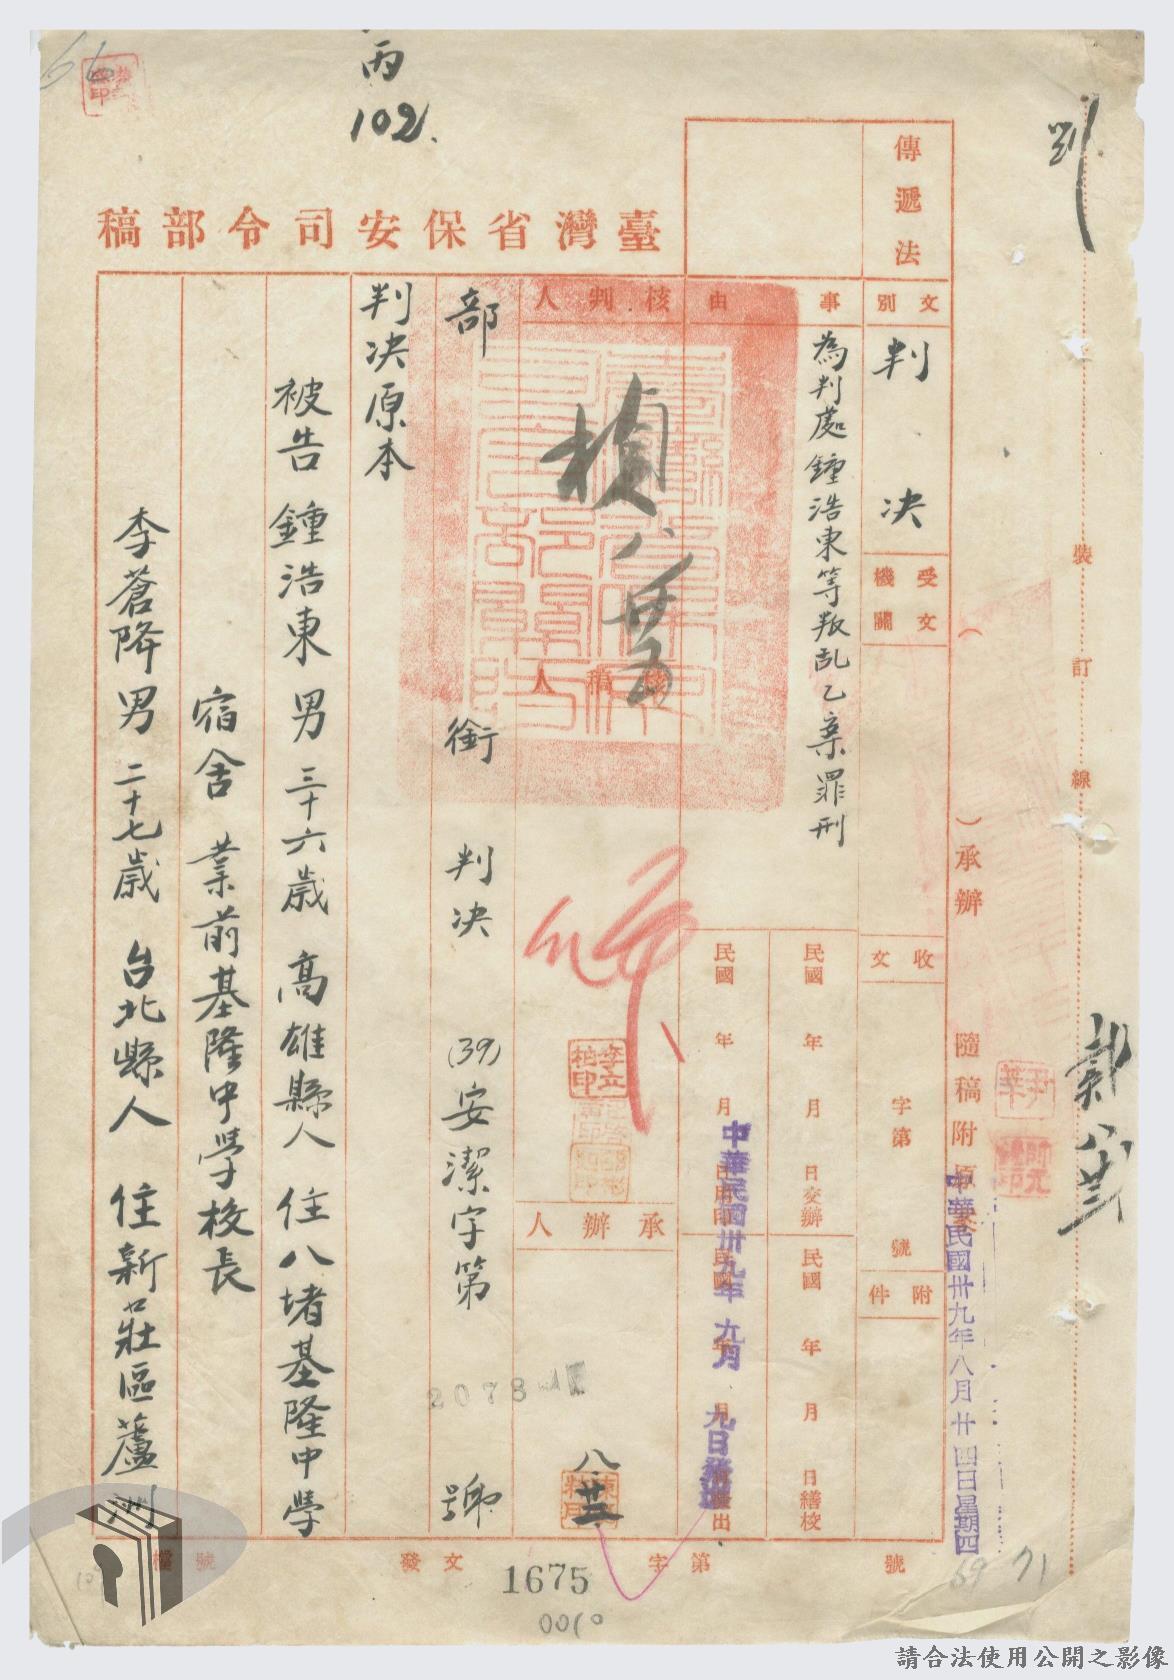 丙
102.
劉
臺灣省保安司令部稿
傳遞法
文別
判決
受文機關
事由
為判處鍾浩東等叛乱乙案罪刑
核判人
楨 八廿五
核稿人
承辦人
八.廿三
民國 年 月 日交辦
民國 年 月 日繕校
民國 年 月
民國
中華民國卅九年九月九日
收文
字第
號
附件
( )承辦
隨稿附原
中華民國卅九年八月廿四日星期四
裝訂線
部
銜
判決
(39)安潔字第
2078
號
判决原本
被告鍾浩東 男 三十六歲 高雄縣人 住八堵基隆中學
宿舍 業前基隆中學校長
李蒼降 男 二十七歲 台北縣人 住新莊區蘆洲
檔號
發文
字第
號
1675
0010
69
71
請合法使用公開之影像